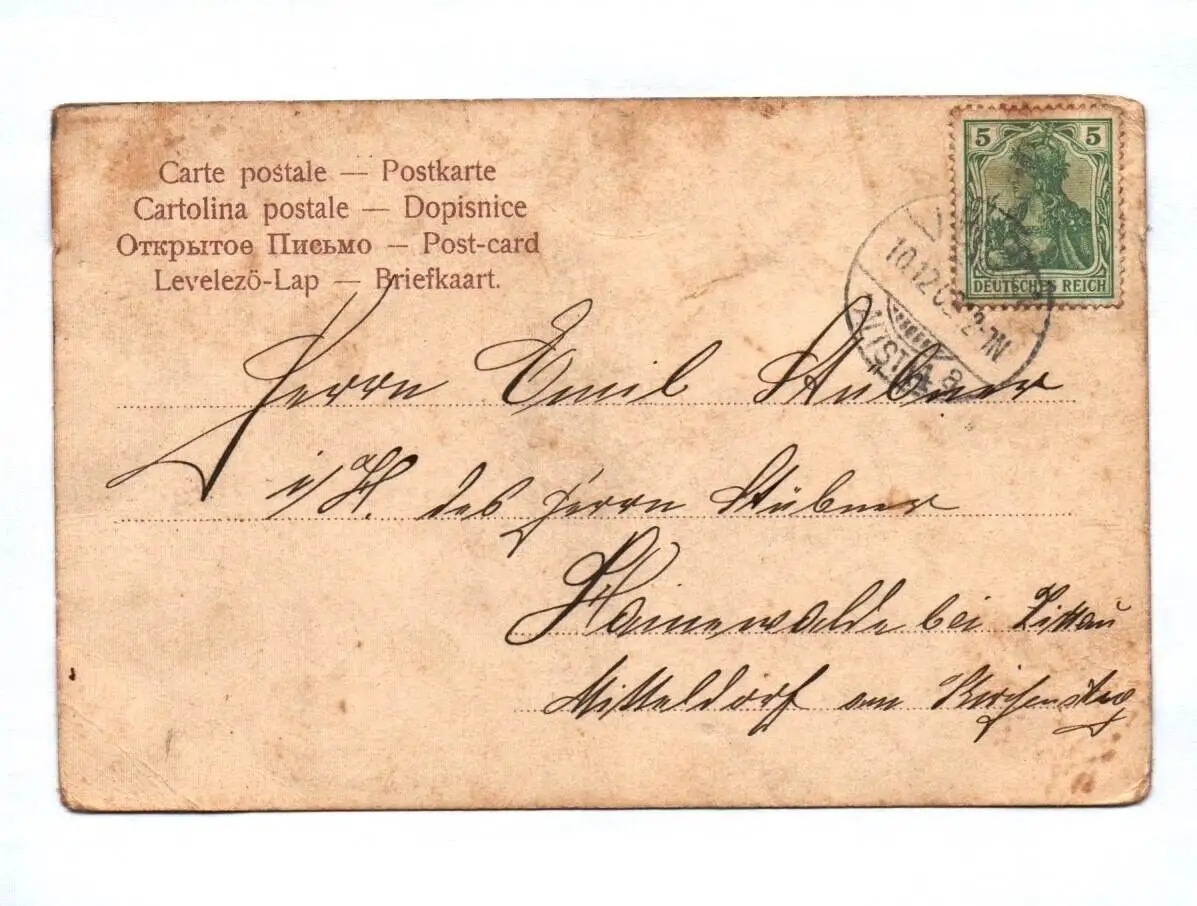 Carte postale — Postkarte
Cartolina postale — Dopisnice
Открытое Письмо — Post-card
Levelező-Lap — Briefkaart.
5 5
DEUTSCHES REICH
10.12.0 2-3N
Herrn Emil Stübner
i/H. des Herrn Stübner
Hainewalde bei Zittau
Mitteldorf am